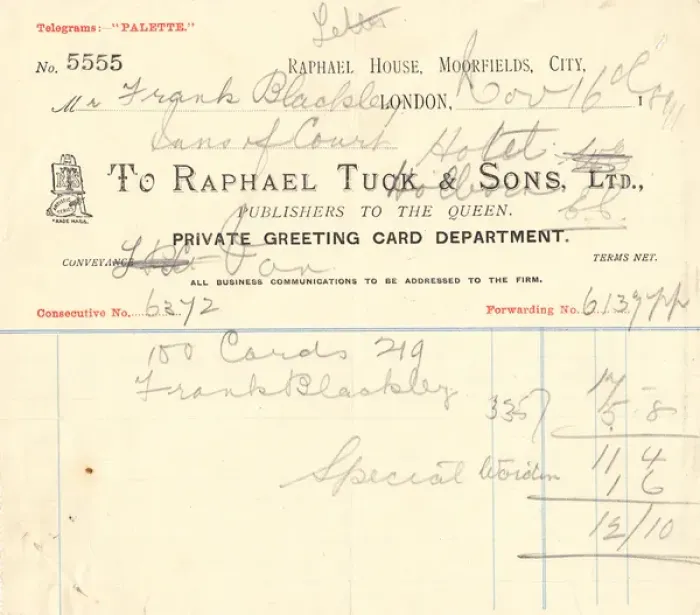 Letter
Telegrams:—"PALETTE."
No. 5555
RAPHAEL HOUSE, MOORFIELDS, CITY,
Mr Frank Blackley LONDON, Nov 16 1891
Inns of Court Hotel
Holborn
TO RAPHAEL TUCK & SONS, LTD.,
TRADE MARK.
PUBLISHERS TO THE QUEEN. E.C.
PRIVATE GREETING CARD DEPARTMENT.
CONVEYANCE Van TERMS NET.
ALL BUSINESS COMMUNICATIONS TO BE ADDRESSED TO THE FIRM.
Consecutive No. 6372 Forwarding No. 6137pp
100 Cards 219
Frank Blackley 17 -
335 5 8
11 4
Special Wording 1 6
12/10